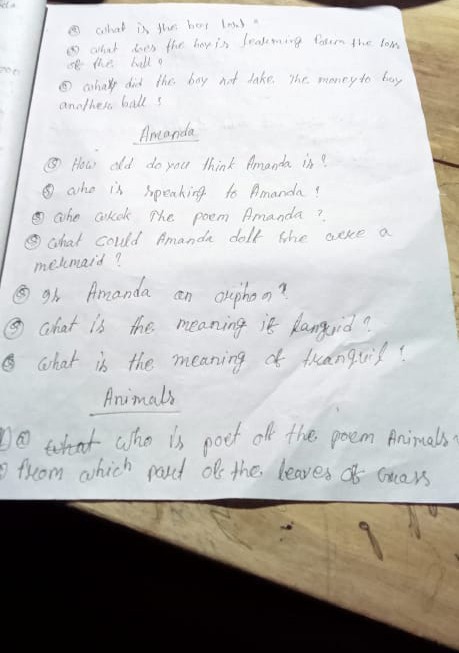 what is the boy lost?
what does the boy is learning from the loss
of the ball?
why did the boy not take the money to buy
another ball?
Amanda
How old do you think Amanda is?
who is speaking to Amanda?
who the poem Amanda?
what could Amanda if she were a
mermaid?
Is Amanda an orphan?
what is the meaning of languid?
what is the meaning of tranquil?
Animals
who is poet of the poem Animals
from which part of the leaves of Grass